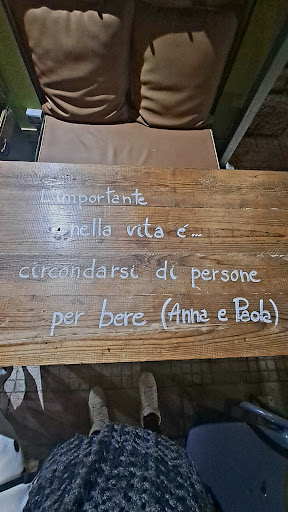 L'importante
nella vita é...
circondarsi di persone
per bere (Anna e Paola)